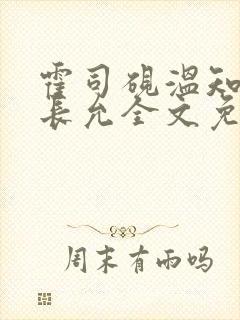 霍司砚温知
长允全文免
周末有雨吗